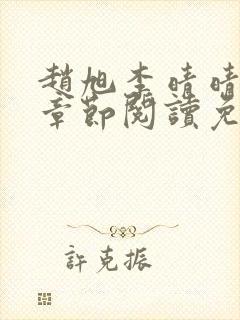 趙旭李晴晴
章節閱讀免
許克振